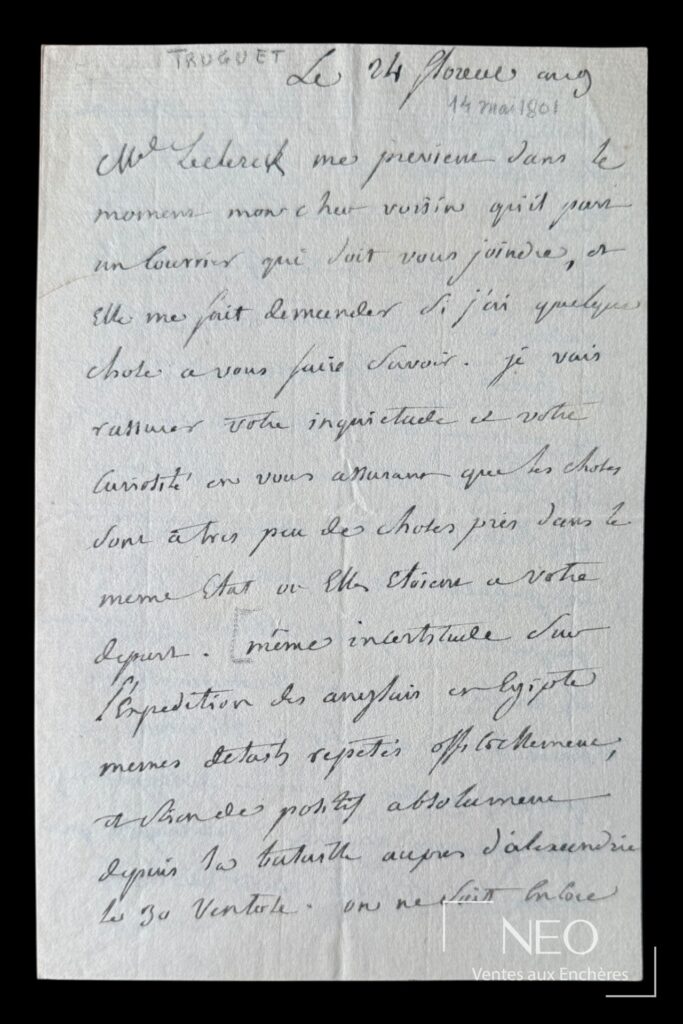 TRUGUET
Le 24 floreal an 9
14 mai 1801
Md Leclerck me previent dans le
moment mon cher voisin qu'il part
un Courrier qui doit vous joindre, et
Elle me fait demander si j'ai quelque
chose a vous faire savoir. je vais
rassurer votre inquietude et votre
Curiosité en vous assurant que les choses
sont à tres peu de choses près dans le
meme Etat ou Elles Etoient a votre
depart. [même incertitude sur
l'Expedition des anglais en Egipte
memes details repetés officiellement,
et rien de positif absolument
depuis la bataille aupres d'alexandrie
le 30 Ventose. on ne sait Encore
NEO
Ventes aux Enchères